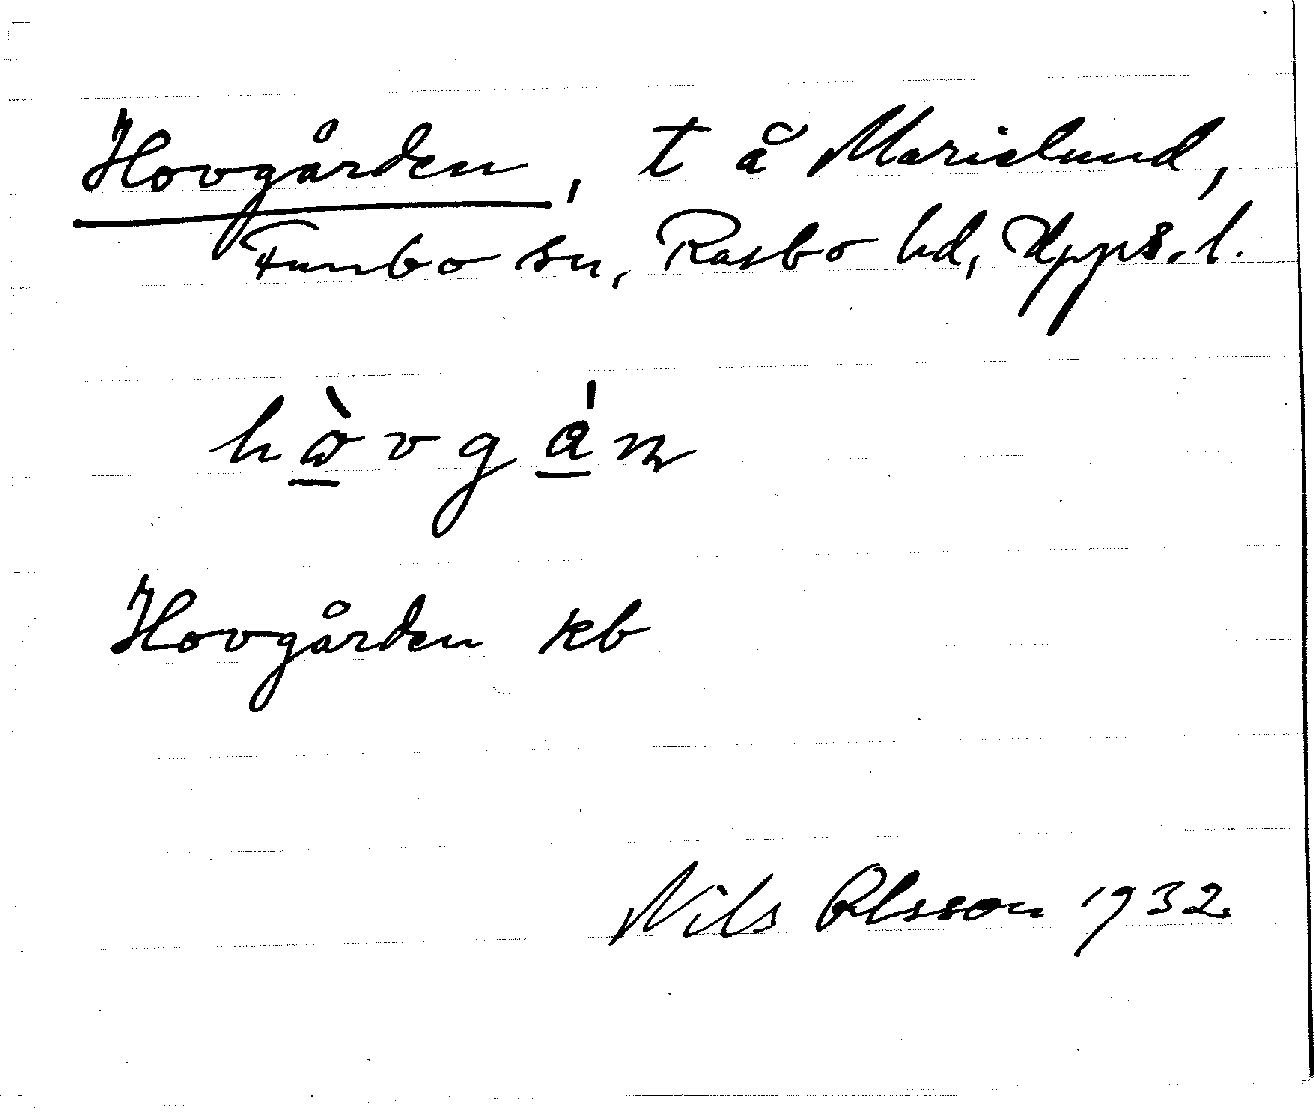 Hovgården, t å Marielund,
Funbo sn, Rasbo hd, Upps. l.
hòvgán
Hovgården kb
Nils Olsson 1932.